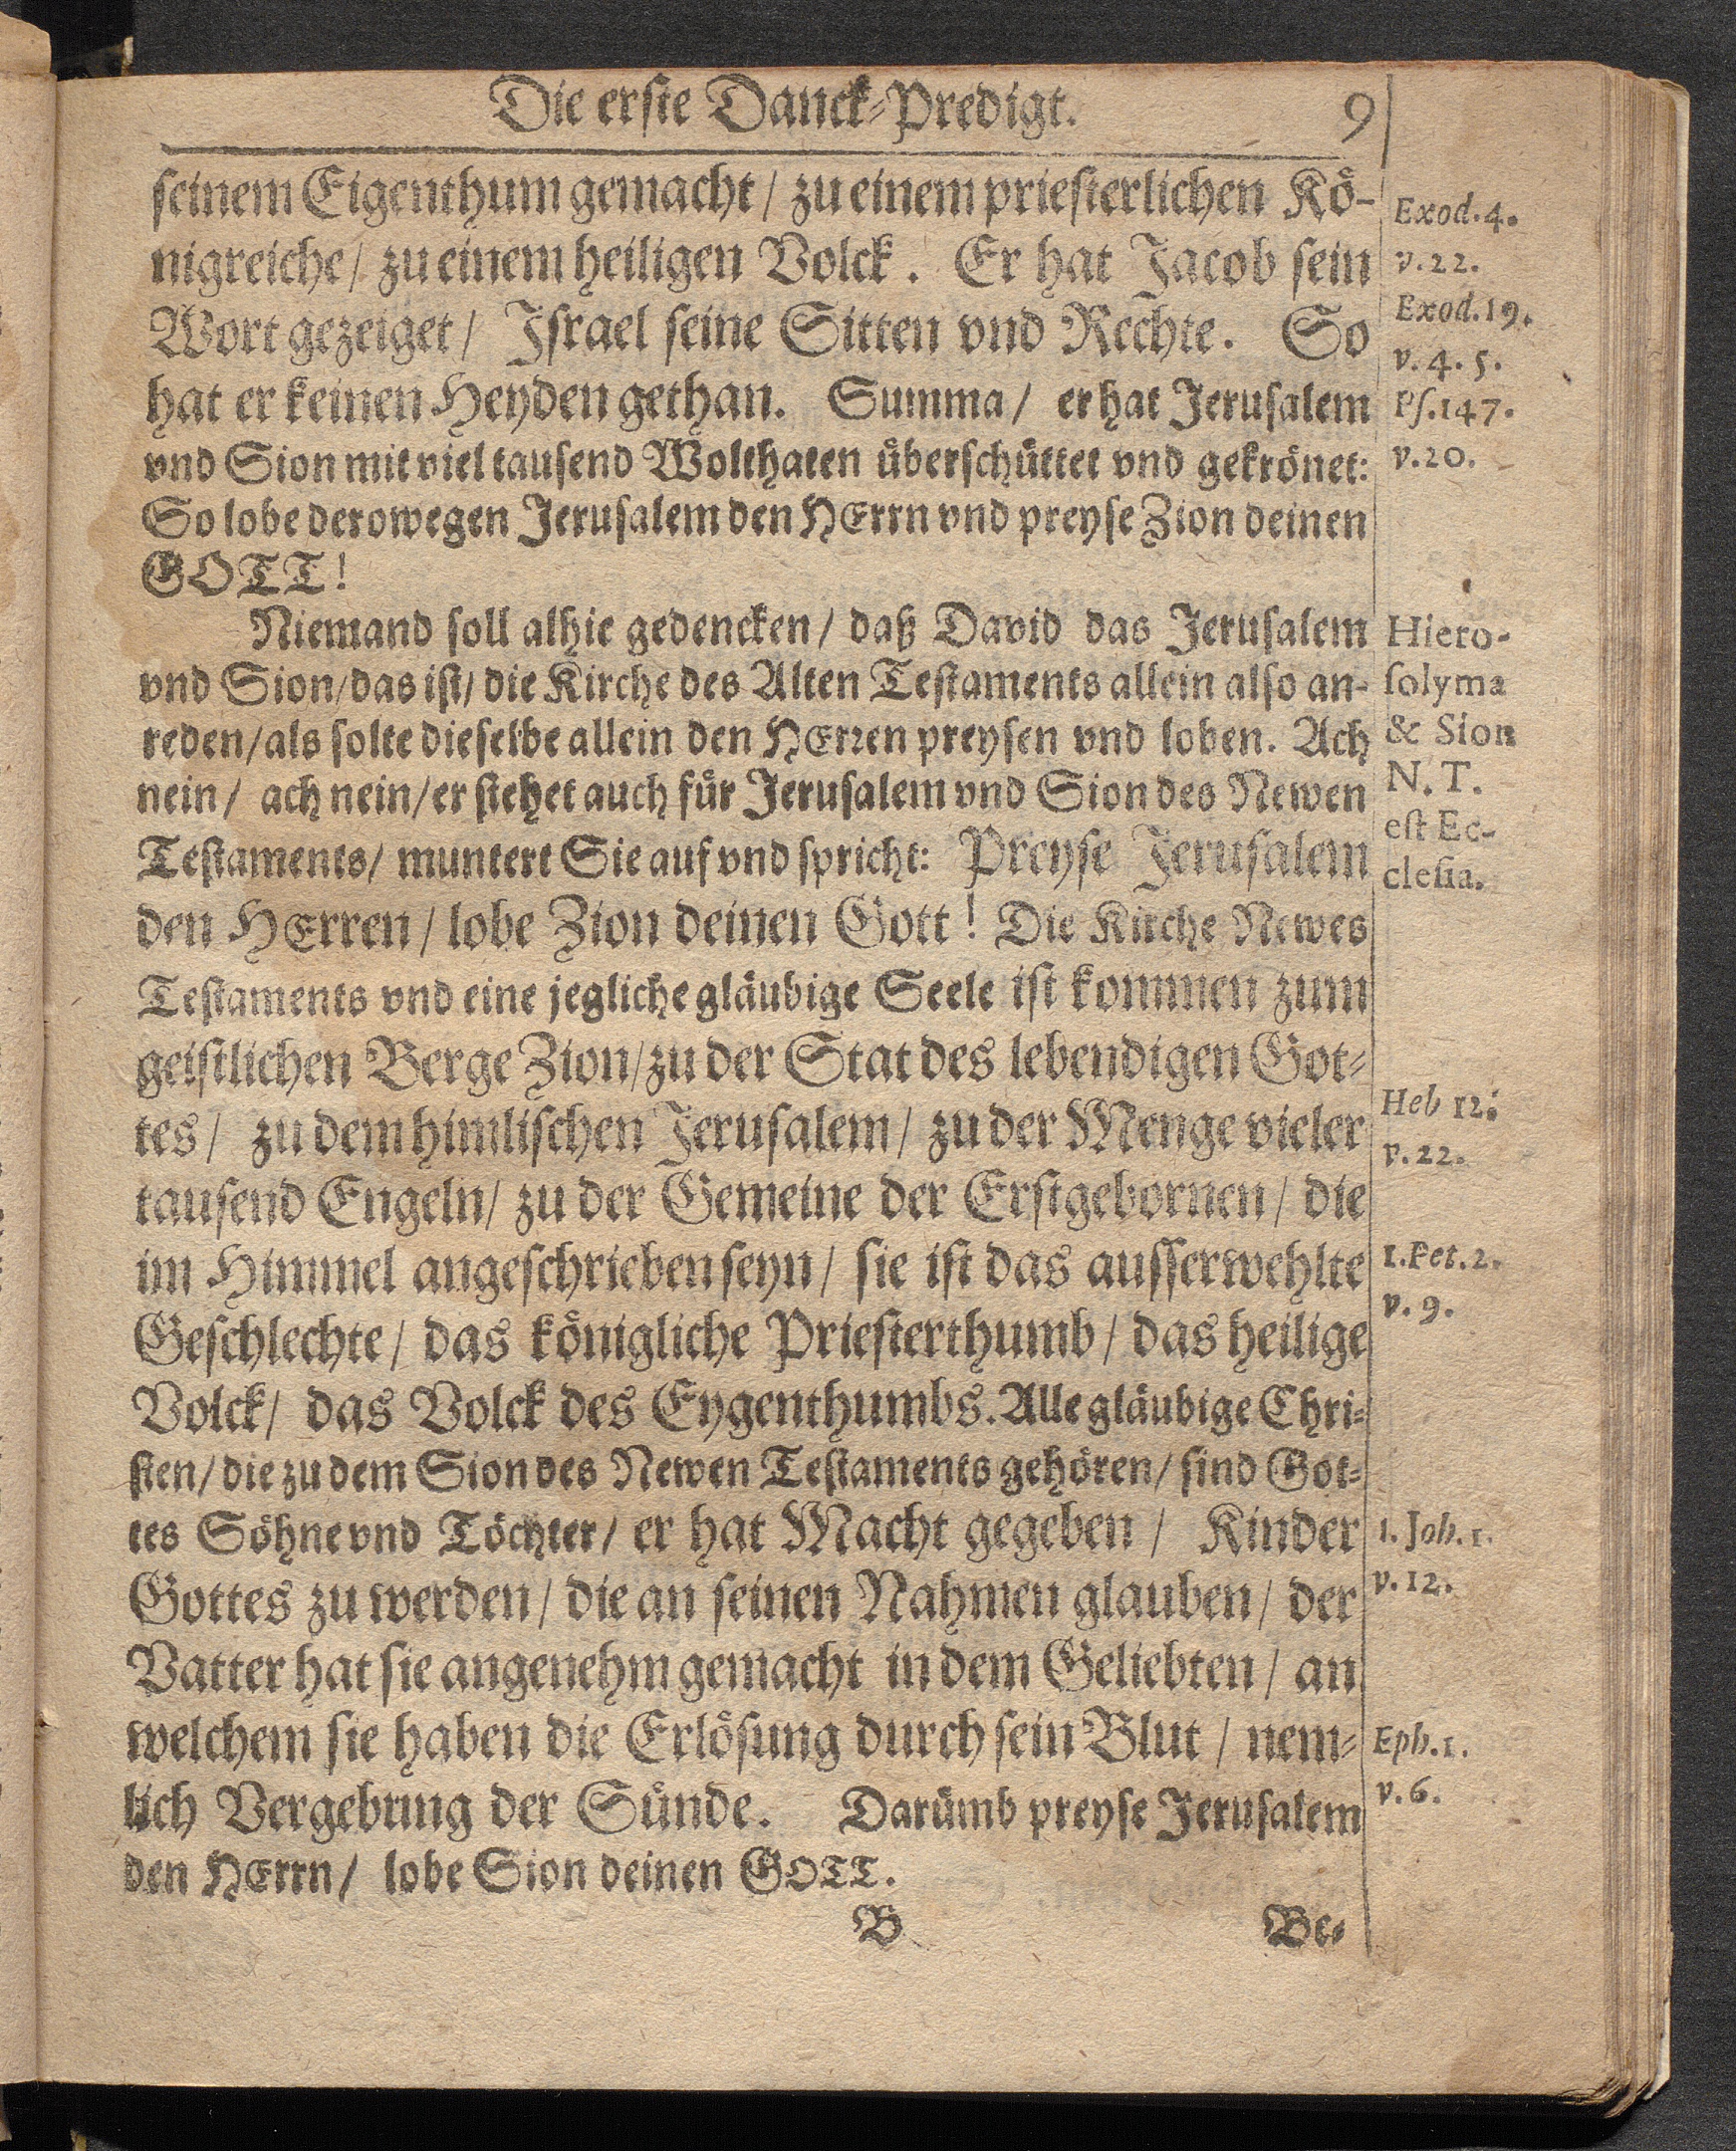 Die erste Danck-Predigt. 9
seinem Eigenthum gemacht / zu einem priesterlichen Kö-
nigreiche / zu einem heiligen Volck. Er hat Jacob sein
Wort gezeiget / Israel seine Sitten vnd Rechte. So
hat er keinen Heyden gethan. Summa / er hat Jerusalem
vnd Sion mit viel tausend Wolthaten überschüttet vnd gekrönet:
So lobe derowegen Jerusalem den HErrn vnd preyse Zion deinen
GOTT!
Niemand soll alhie gedencken / daß David das Jerusalem
vnd Sion / das ist / die Kirche des Alten Testaments allein also an-
reden / als solte dieselbe allein den HErren preysen vnd loben. Ach
nein / ach nein / er siehet auch für Jerusalem vnd Sion des Newen
Testaments / muntert Sie auf vnd spricht: Preyse Jerusalem
den HErren / lobe Zion deinen Gott! Die Kirche Newes
Testaments vnd eine jegliche gläubige Seele ist kommen zum
geistlichen Berge Zion / zu der Stat des lebendigen Got-
tes / zu dem himlischen Jerusalem / zu der Menge vieler
tausend Engeln / zu der Gemeine der Erstgebornen / die
im Himmel angeschrieben seyn / sie ist das ausserwehlte
Geschlechte / das königliche Priesterthumb / das heilige
Volck / das Volck des Eygenthumbs. Alle gläubige Chri-
sten / die zu dem Sion des Newen Testaments gehören / sind Got-
tes Söhne vnd Töchter / er hat Macht gegeben / Kinder
Gottes zu werden / die an seinen Nahmen glauben / der
Vatter hat sie angenehm gemacht in dem Geliebten / an
welchem sie haben die Erlösung durch sein Blut / nem-
lich Vergebung der Sünde. Darümb preyse Jerusalem
den HErrn / lobe Sion deinen GOTT.
B Be-
Exod. 4.
v. 22.
Exod. 19.
v. 4. 5.
Ps. 147.
v. 20.
Hiero-
solyma
& Sion
N. T.
est Ec-
clesia.
Heb 12.
v. 22.
1. Pet. 2.
v. 9.
1. Joh. 1.
v. 12.
Eph. 1.
v. 6.